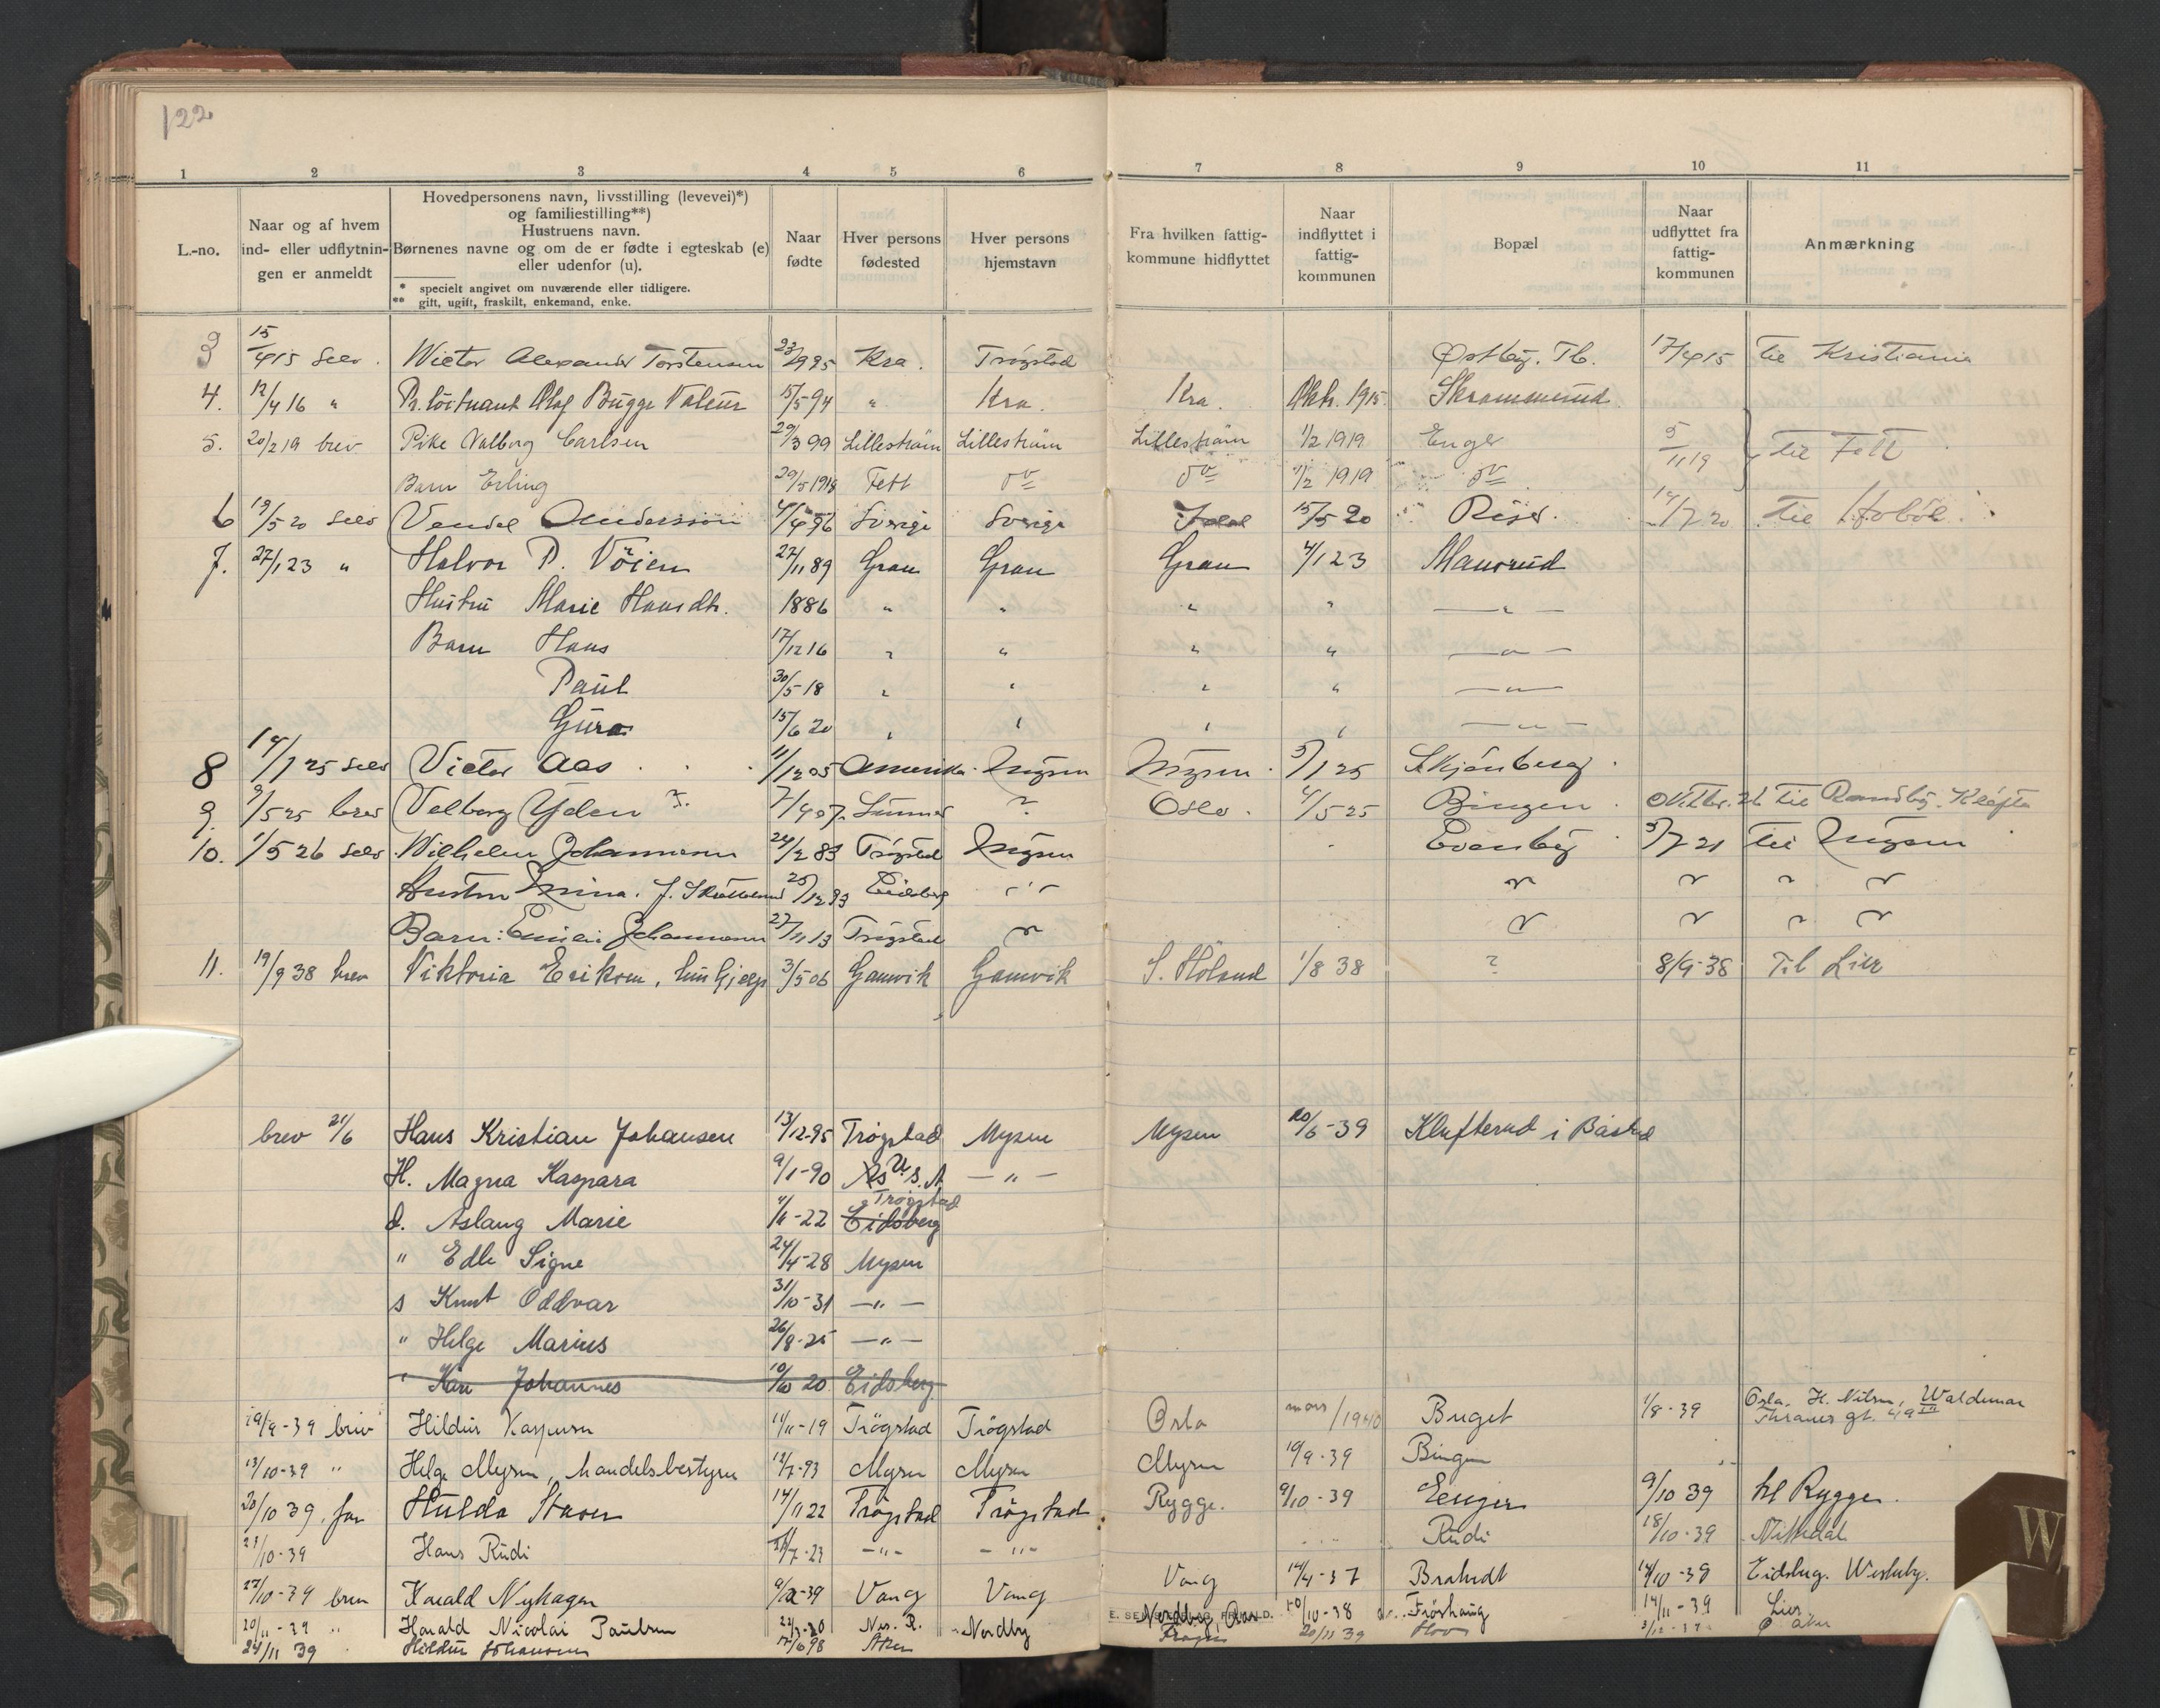 122
1 2 3 4 5 6 7 8 9 10 11
L.-no.
Naar og af hvem
ind- eller udflytnin-
gen er anmeldt
Hovedpersonens navn, livsstilling (levevei)*)
og familiestilling**)
Hustruens navn.
Børnenes navne og om de er fødte i egteskab (e)
eller udenfor (u).
* specielt angivet om nuværende eller tidligere.
** gift, ugift, fraskilt, enkemand, enke.
Naar
fødte
Hver persons
fødested
Hver persons
hjemstavn
Fra hvilken fattig-
kommune hidflyttet
Naar
indflyttet i
fattig-
kommunen
Bopæl
Naar
udflyttet fra
fattig-
kommunen
Anmærkning
3 15/4 15 selv. Victor Alexander Torstensen Kra. Trøgstad Østby. Tb. 17/4 15 til Kristiania
4. 12/4 16 " Pr. löitnant Olaf Bugge Valeur 15/5 94 " Kra. Kra. Okt. 1915 Skrammerud
5. 20/2 19 brev Pike Valborg Carlsen 29/3 99 Lilleström Lilleström Lilleström 1/2 1919 Enger 5/11 19 } til Fett
Barn Erling 29/5 1918 Fett do do 1/2 1919 do
6 19/5 20 selv Vendel Andersson 4/4 96 Sverige Sverige 15/5 20 Riser. 14/7 20 til Hobøl.
7. 27/1 23 " Halvor P. Vöien 27/11 89 Gran Gran Gran 4/1 23 Mansrud
Hustru Marie Hansdtr. 1886 " " " " — " —
Barn Hans 17/12 16 " " " " — " —
Paul 30/5 18 " " " " — " —
Guro 15/6 20 " " " " — " —
8 14/1 25 selv Victor Aas 11/12 05 Amerika Mysen Mysen 5/1 25 Skjönberg
9. 9/5 25 brev Valborg Yden ?. 7/4 07. Lunner ? Oslo. 4/5 25 Bingen Oktbr. 26 til Randby. Kløfta
10. 1/5 26 selv Wilhelm Johannesen 24/2 83 Trøgstad Mysen Evenby 5/7 21 til Mysen
Hustru Mina. f. 25/12 93 Eidsberg " " " " "
Barn: Johannesen 27/11 13 Trøgstad " " " " "
11. 19/9 38 brev Viktoria Erikson, hushjelp 3/5 06 Gamvik Gamvik S. Höland 1/8 38 ? 8/9-38 Til Lier
brev 21/6 Hans Kristian Johansen 13/12-95 Trøgstad Mysen Mysen 20/6-39 Klufterud i Båstad
H. Magna Kaspara 9/1-90 U.S.A — " —
d. Aslaug Marie 4/11-22 Eidsberg Trøgstad
" Edle Signe 24/4-28 Mysen
s Knut Oddvar 31/10-31 — " —
" Helge Marius 26/8-25 — " —
" Kåre Johannes 10/10 20 Eidsberg
19/9-39 brev Hildur Kaspersen 11/11-19 Trögstad Trögstad Oslo mars/1940 Buget 1/8-39 Oslo, H. Nilsen, Waldemar
Thranes gt. 49 III
13/10-39 " Helge Mysen, handelsbestyrer 12/7-93 Mysen Mysen Mysen 19/9-39 Bingen
20/10 39. far Hulda Staven 14/11 22 Trögstad Trögstad Rygge. 9/10-39 Eenger 9/10 39 til Rygge.
23/10-39 Hans Rudi 7-23 — " — — " — Rudi 18/10-39 Nittedal
27/10-39 brev Harald Nyhagen Vang Vang Vang 14/4-37 Brandt 14/10-39 Eidsberg.
20/11-39 " Harald Nicolai Paulsen Nes. R. Nordby Nordby 10-38 Fröshaug 14/11-39 Lier
24/11 39 Hildur Johansen 17/6 98 Aker 20/11 39 Hov Aker
W